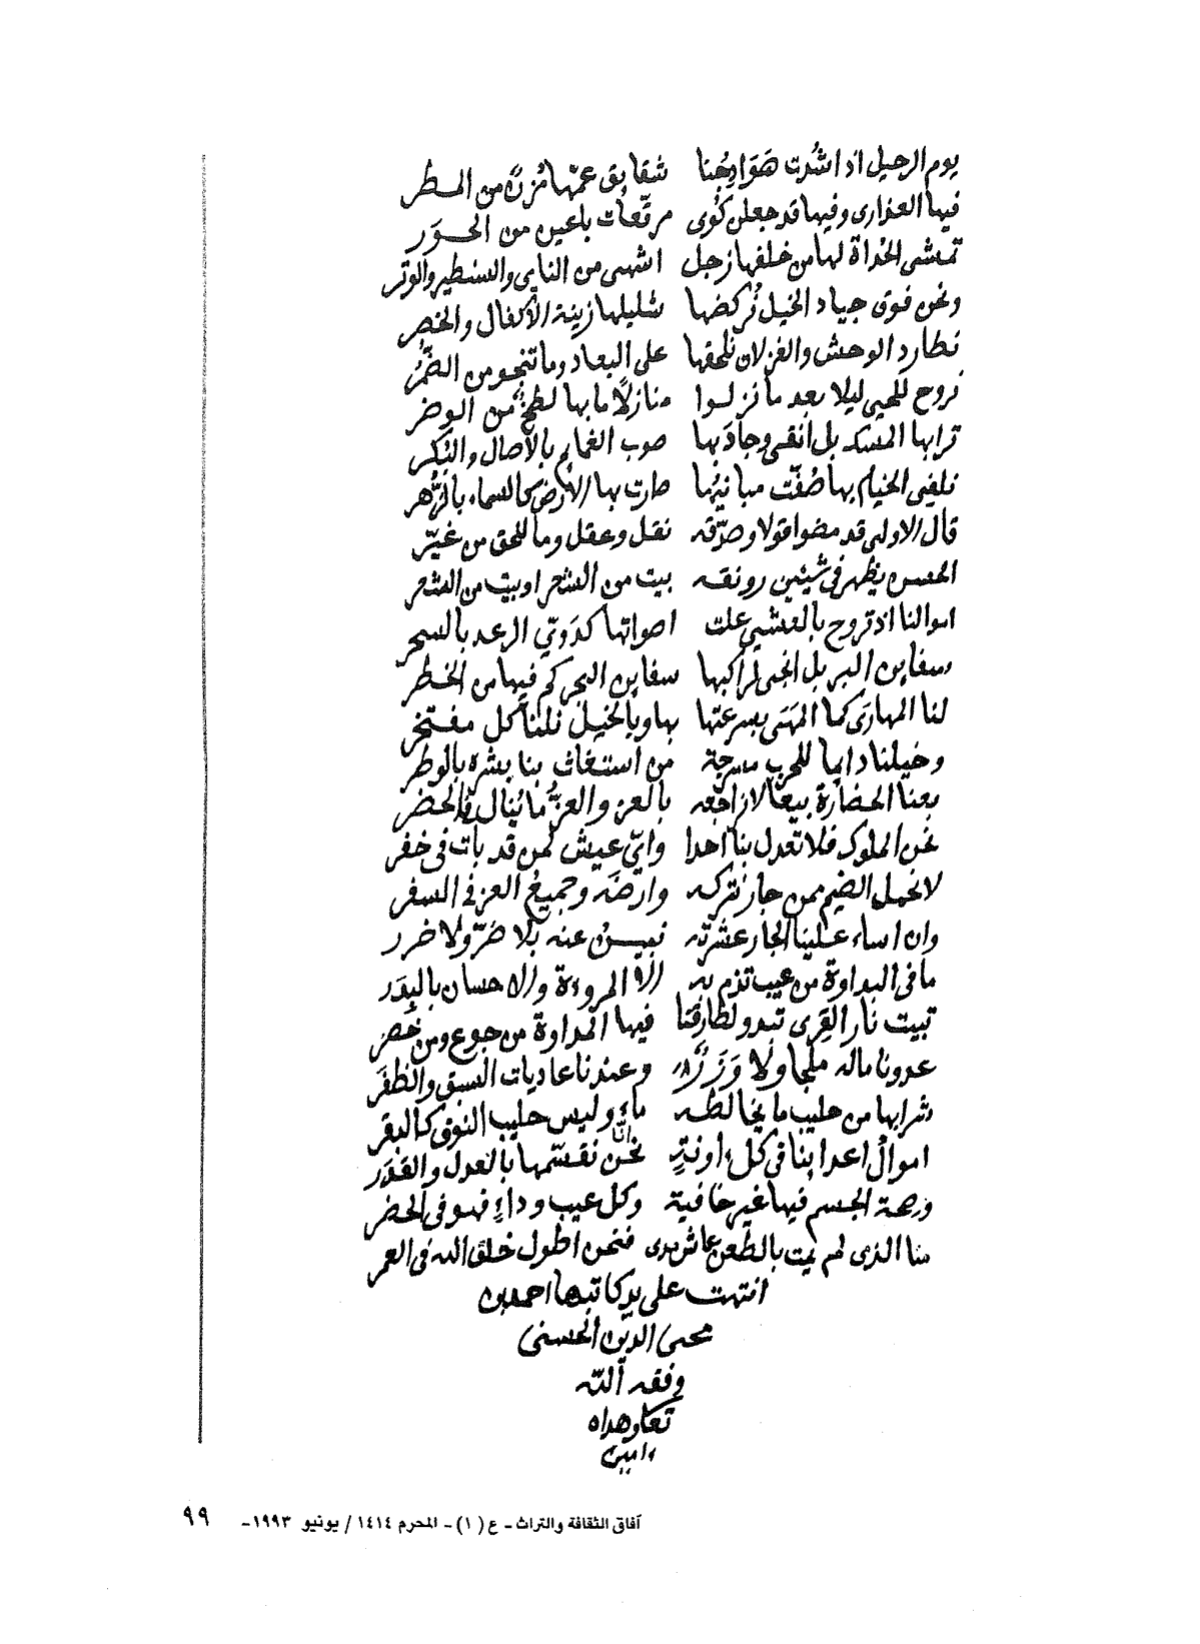 يوم الرحيل اذا شُدت هَوَادِجُنا شقايق عمّها مُزنٌ من المطر
فيها العذارى وفيها قد جعلن كُوى مرقّعات باعين من الحوَر
تمشى الحُداة لها من خلفها زجل اشهى من الناي والسنطير والوتر
ونحن فوق جياد الخيل نُركضها شليلها زينة الأكفال والخصر
نطارد الوحش والغزلان نلحقها على البعاد وما تنجو من الضُّمُر
نروح للحي ليلا بعد ما نزلوا منازلًا ما بها لطخٌ من الوضر
ترابها المسك بل انقى وجاد بها صوب الغمايم بالآصال والبُكر
نلقى الخيام بها صُفّت مبانيُها صارت بها الأرض كالسماء بالزُّهر
قال الاولى قد مضوا قولا وصدّقه نقل وعقل وما للحق من غيَر
الحسن يظهر فى شيئين رونقه بيت من الشعر او بيت من الشعر
اموالنا اذ تروح بالعشي علت اصواتها كدَوىّ الرعد بالسحر
سفاين البر بل انجى لراكبها سفاين البحر كم فيها من الخطر
لنا المهارَى كما المَهَى بسرعتها بها وبالخيل نلنا كل مفتخر
وخيلنا دايما للحرب مسرجة من استغاث بنا بشره بالوطر
بعنا الحضارة بيعًا لا نراجعه بالعز والعزُّ ما يُنال فى الحضر
نحن الملوك فلا تعدل بنا احدا واىّ عيش لمن قد بات فى خفر
لا نحمل الضيم ممن جار نتركه وارضَه وجميعُ العز فى السفر
وان اساء علينا الجار عشرته نبينُ عنه بلا ضرّ ولا ضرر
ما فى البداوة من عيب تذم به الا المروءة والاحسان بالبِدَر
تبيت نار القِرى تبدو لطارقنا فيها المداوة من جوع ومن خصر
عدونا ماله ملجأ ولا وَزَرٌ وعندنا عاديات السبق والظفَر
شرابها من حليب ما يخالطه ماءٌ وليس حليب النوق كالبقر
اموالُ اعداينا فى كل اونةٍ نحن نقسّمها بالعدل والقدَر
وصحة الجسم فيها غير خافية وكل عيب وداءٍ فهو فى الحضر
منا الذى لم يمت بالطعن عاش مدى فنحن اطول خلق الله فى العمر
انتهت على يد كاتبها احمد بن
محى الدين الحسنى
وفقه الله
تعالى وهداه
ءامين
آفاق الثقافة والتراث - ع (١) - المحرم ١٤١٤ / يونيو ١٩٩٣- ٩٩